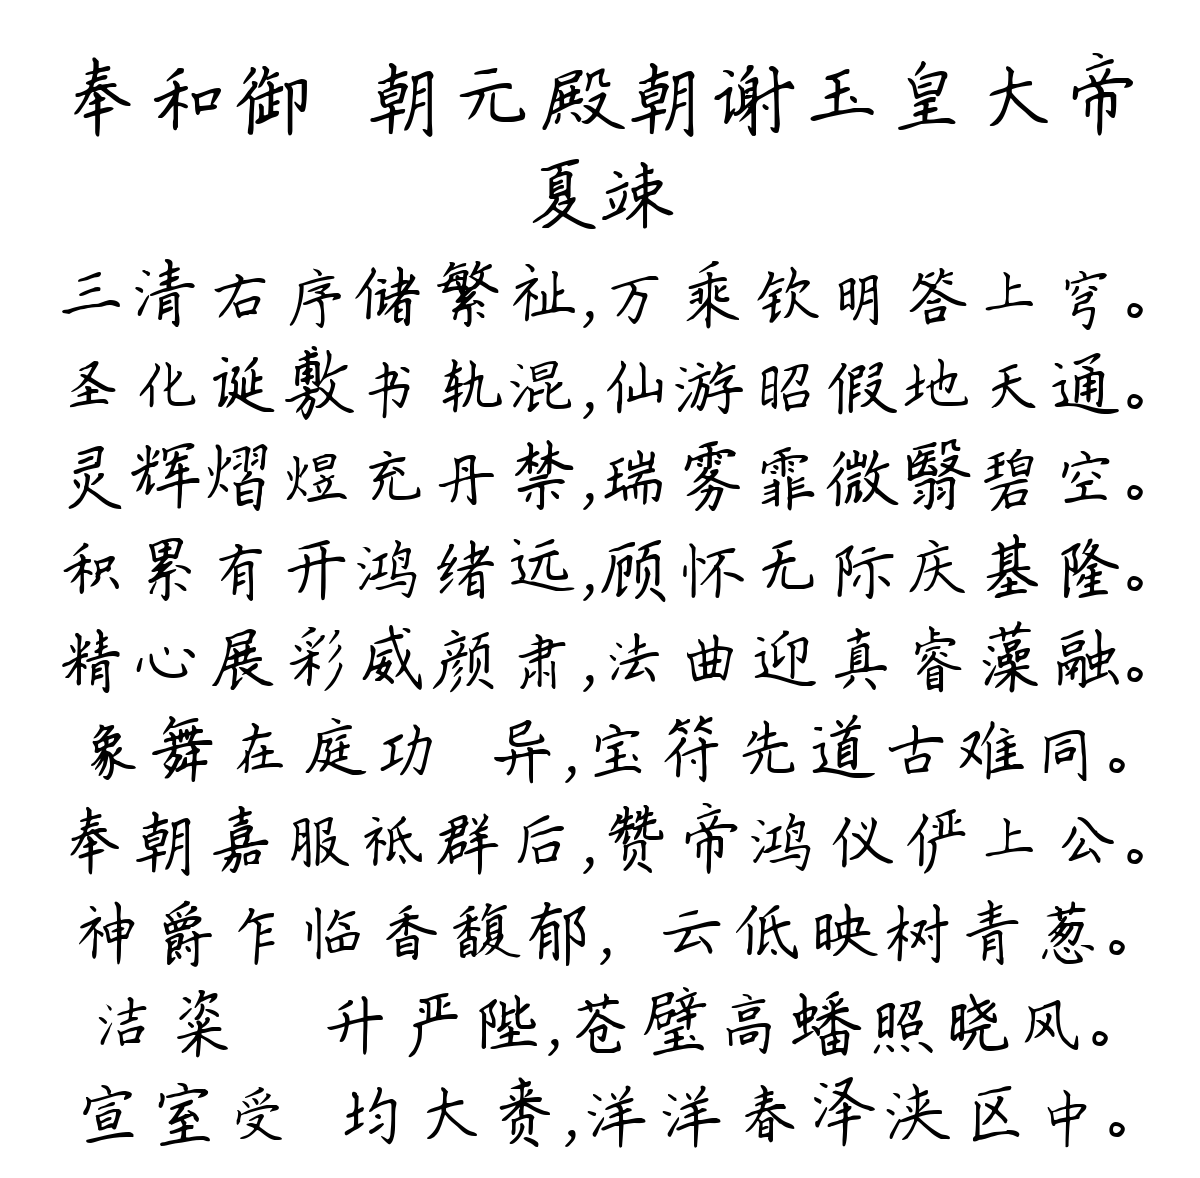 奉和御 朝元殿朝谢玉皇大帝
夏竦
三清右序储繁祉,万乘钦明答上穹。
圣化诞敷书轨混,仙游昭假地天通。
灵辉熠煜充丹禁,瑞雾霏微翳碧空。
积累有开鸿绪远,顾怀无际庆基隆。
精心展彩威颜肃,法曲迎真睿藻融。
象舞在庭功 异,宝符先道古难同。
奉朝嘉服祗群后,赞帝鸿仪俨上公。
神爵乍临香馥郁, 云低映树青葱。
洁粢 升严陛,苍璧高蟠照晓风。
宣室受 均大赉,洋洋春泽浃区中。